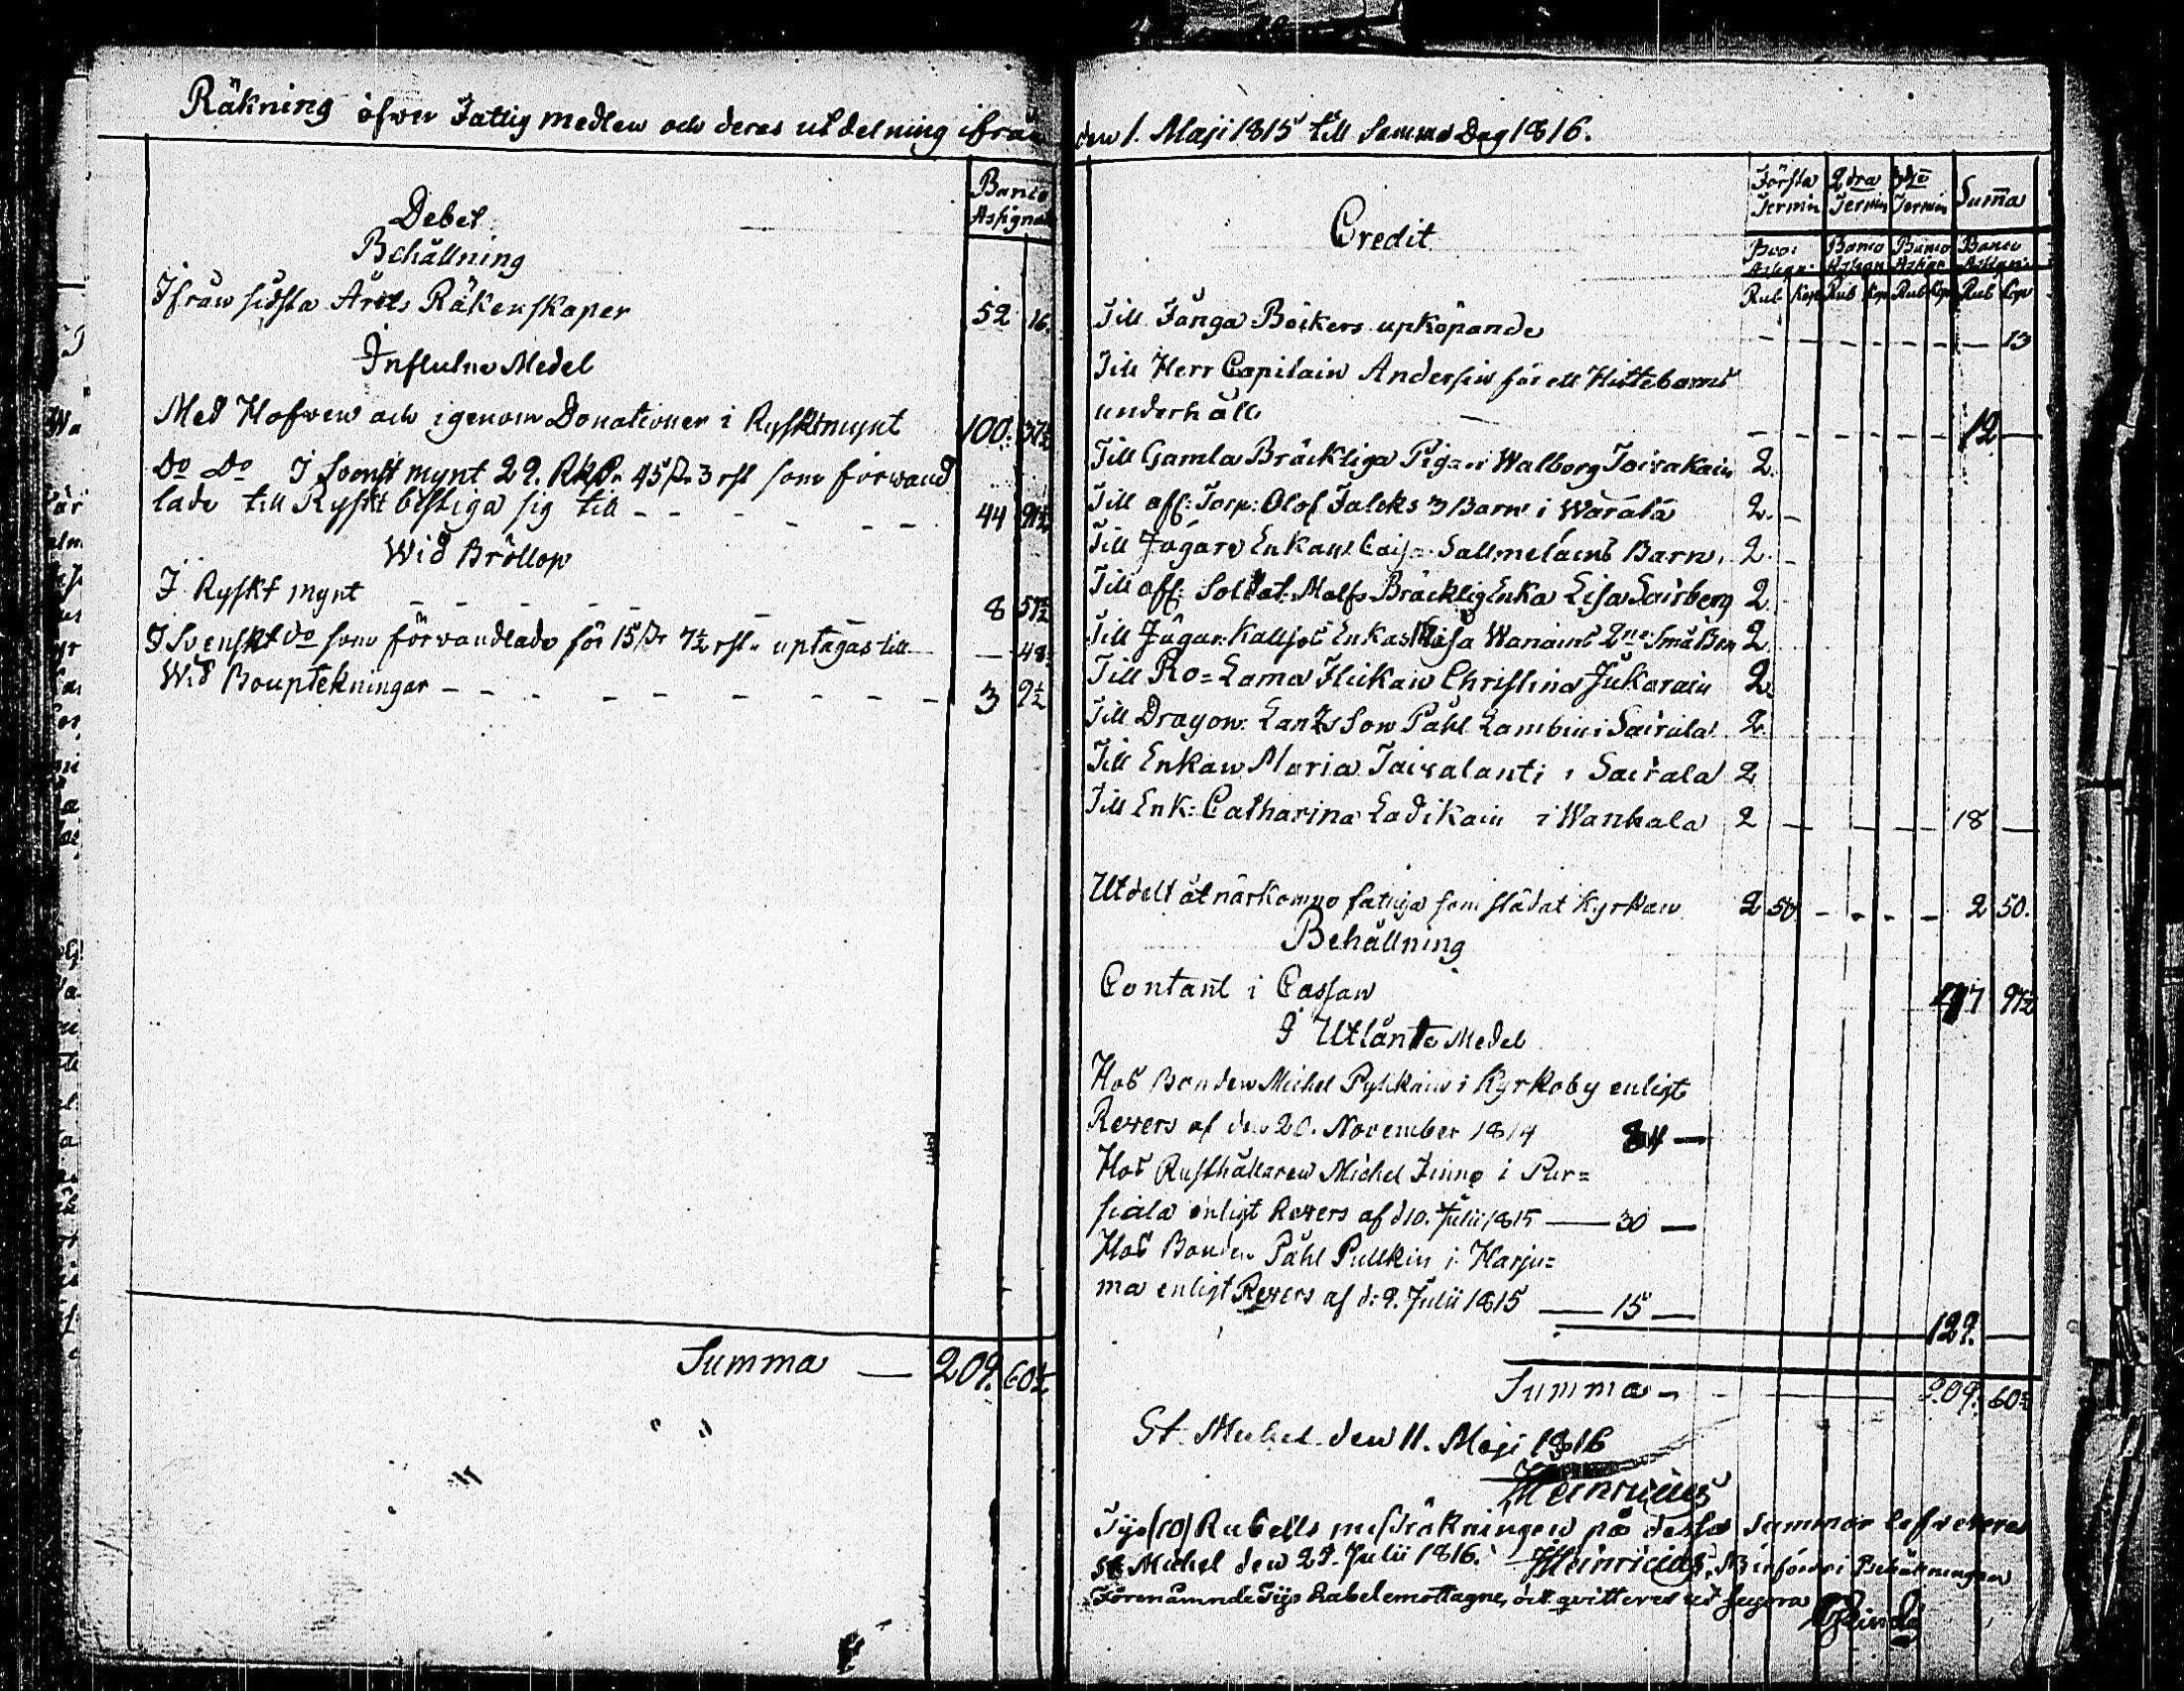 Räkning öfwer Fattig medlen och deras utdelning ifrån
Banco
Assignat
Debet
Behållning
Ifrån sidsta Årets Räkenskaper 52 16.
Influtne Medel
Med Hofwen och igenom Donationer i Ryskt mynt 100. 37½
Do Do I Svenskt mynt 29. Rd. 45 s. 3 rst som förwand
lade till Ryskt bestiga sig till - - - - - - 44 91½
Wid Bröllop
I Ryskt mynt - - - - - - 8 57½
I Svenskt do som förvandlade för 15 s. 7½ rst. uptagas till — — 48.
Wid Bouptekningar - - - - - - - - - 3 9½
Summa — 209. 60½
den 1. Maji 1815 till Samma Dag 1816.
Första 2dra 3die Summa
Termin Termin Termin
Credit
Bco Banco Banco Banco
Assign. Assign Assign Assign.
Rub Kop Rub Kop Rub Kop Rub Kop
Till Fånga Böckers upköpande - - - - - - - — 13
Till Herr Capitain Andersin för ett Hittebarns
underhåll - - - - - - - 12 —
Till Gamla Bräckliga Pigan Walborg Toivakain 2.
Till aff: Torp: Olof Falcks 3 Barn i Warala 2. -
Till Jägare Enkans Caisa Sallmelains Barn. 2. -
Till aff: Soldat: Malfs Bräcklig Enka Lisa Sairberg 2.
Till Jägar: Enkas Wanains 2ne Små Barn 2
Till Ro= Lama Flickan Christina Jukarain 2.
Till Dragon: Lantzs Son Påhl Lambin i Sairala 2.
Till Enkan Maria Taivalanti i Sairala 2
Till Enk: Catharina Ladikain i Wanhala 2 — — — 18 —
Utdelt åt närkomne fatiga som städat Kyrkan 2 50 - - - - 2 50.
Behållning
Contant i Cassan 47 97½
I Utlånte Medel
Hos Bonden Michel Pylckäin i Kyrkoby enligt
Revers af den 20. November 1814 84 —
Hos Rusthållaren Michel Finne i Pur=
siala enligt Revers af d 10. Julii 1815 — 30 —
Hos Bonden Påhl Pullkin i Harju=
ma enligt Revers af d: 9. Julii 1815 — 15 —
129. —
Summa - — 209. 60½
St. Michel den 11. Maji 1816
Heinricius
Tijo (10) Rubels missräkningen på dessa Summor lefvereras
St Michel den 29. Julii 1816. Heinricius.
Förenämnde Tijo Rubel emottagne, det qvitteras ut supra